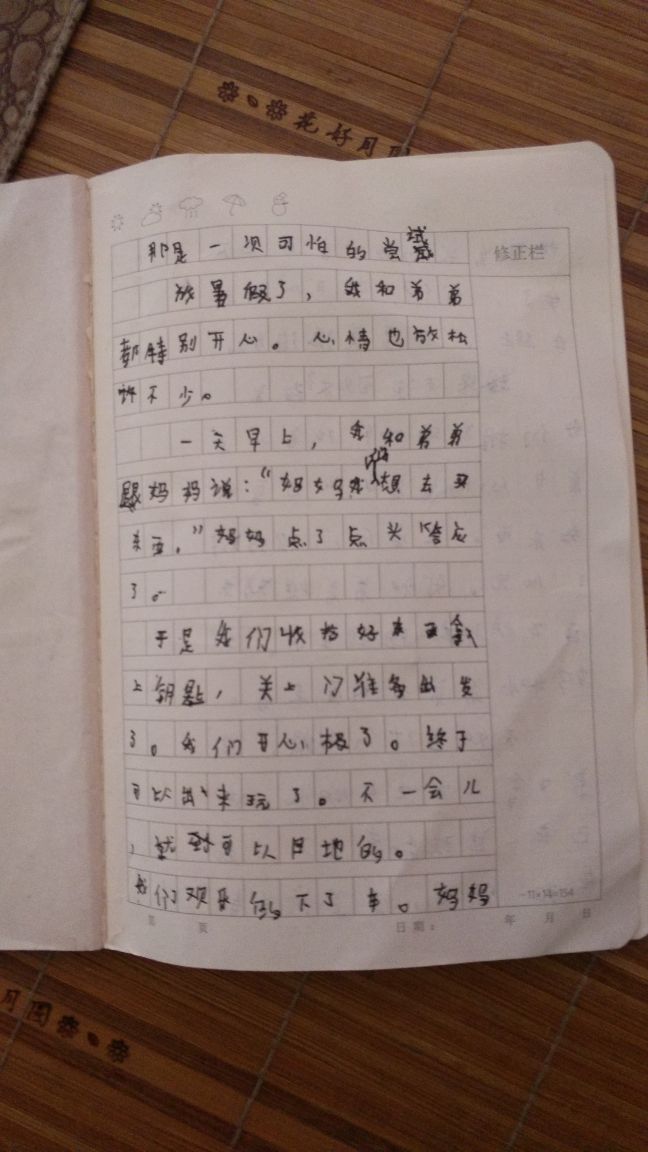 花好月圆
那是一次可怕的尝试
修正栏
放暑假了，我和弟弟
都特别开心。心情也放松
许不少。
一天早上，我和弟弟
跟妈妈说：“妈妈我们想去买
东西，”妈妈点了点头答应
了。
于是我们收拾好东西拿
上钥匙，关上门准备出发
了。我们开心极了。终于
可以出来玩了。不一会儿
，就到可以目地的。
我们欢乐的下了车。妈妈
11×14=154
第 页 日期： 年 月 日
月圆